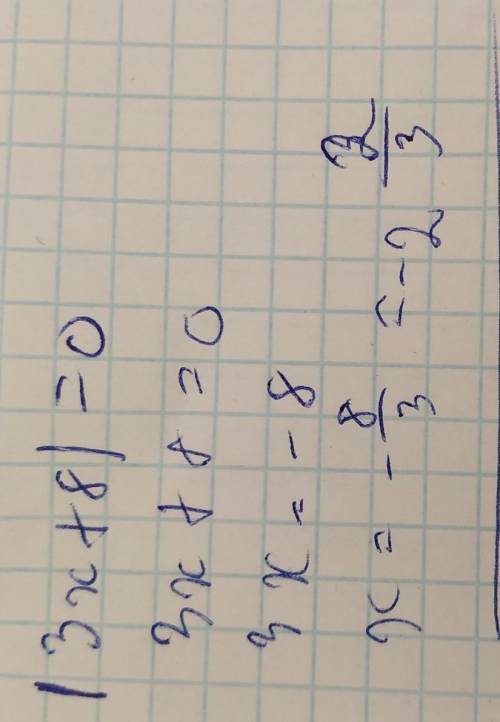 |3x+8|=0
3x+8=0
3x=-8
x=-8/3=-2 2/3